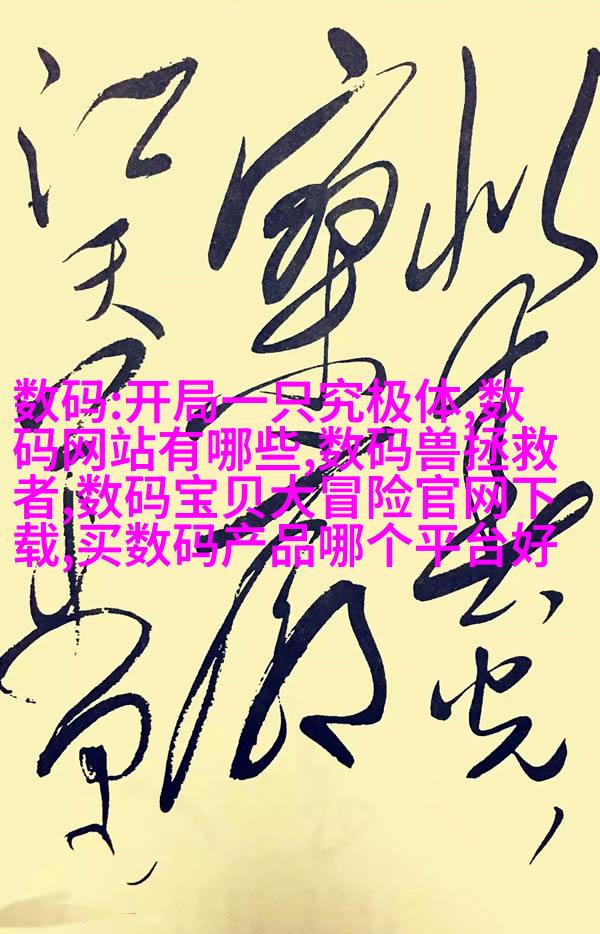 似春光，
寥廓
江天万里霜
数码:开局一只究极体,数
码网站有哪些,数码兽拯救
者,数码宝贝大冒险官网下
载,买数码产品哪个平台好